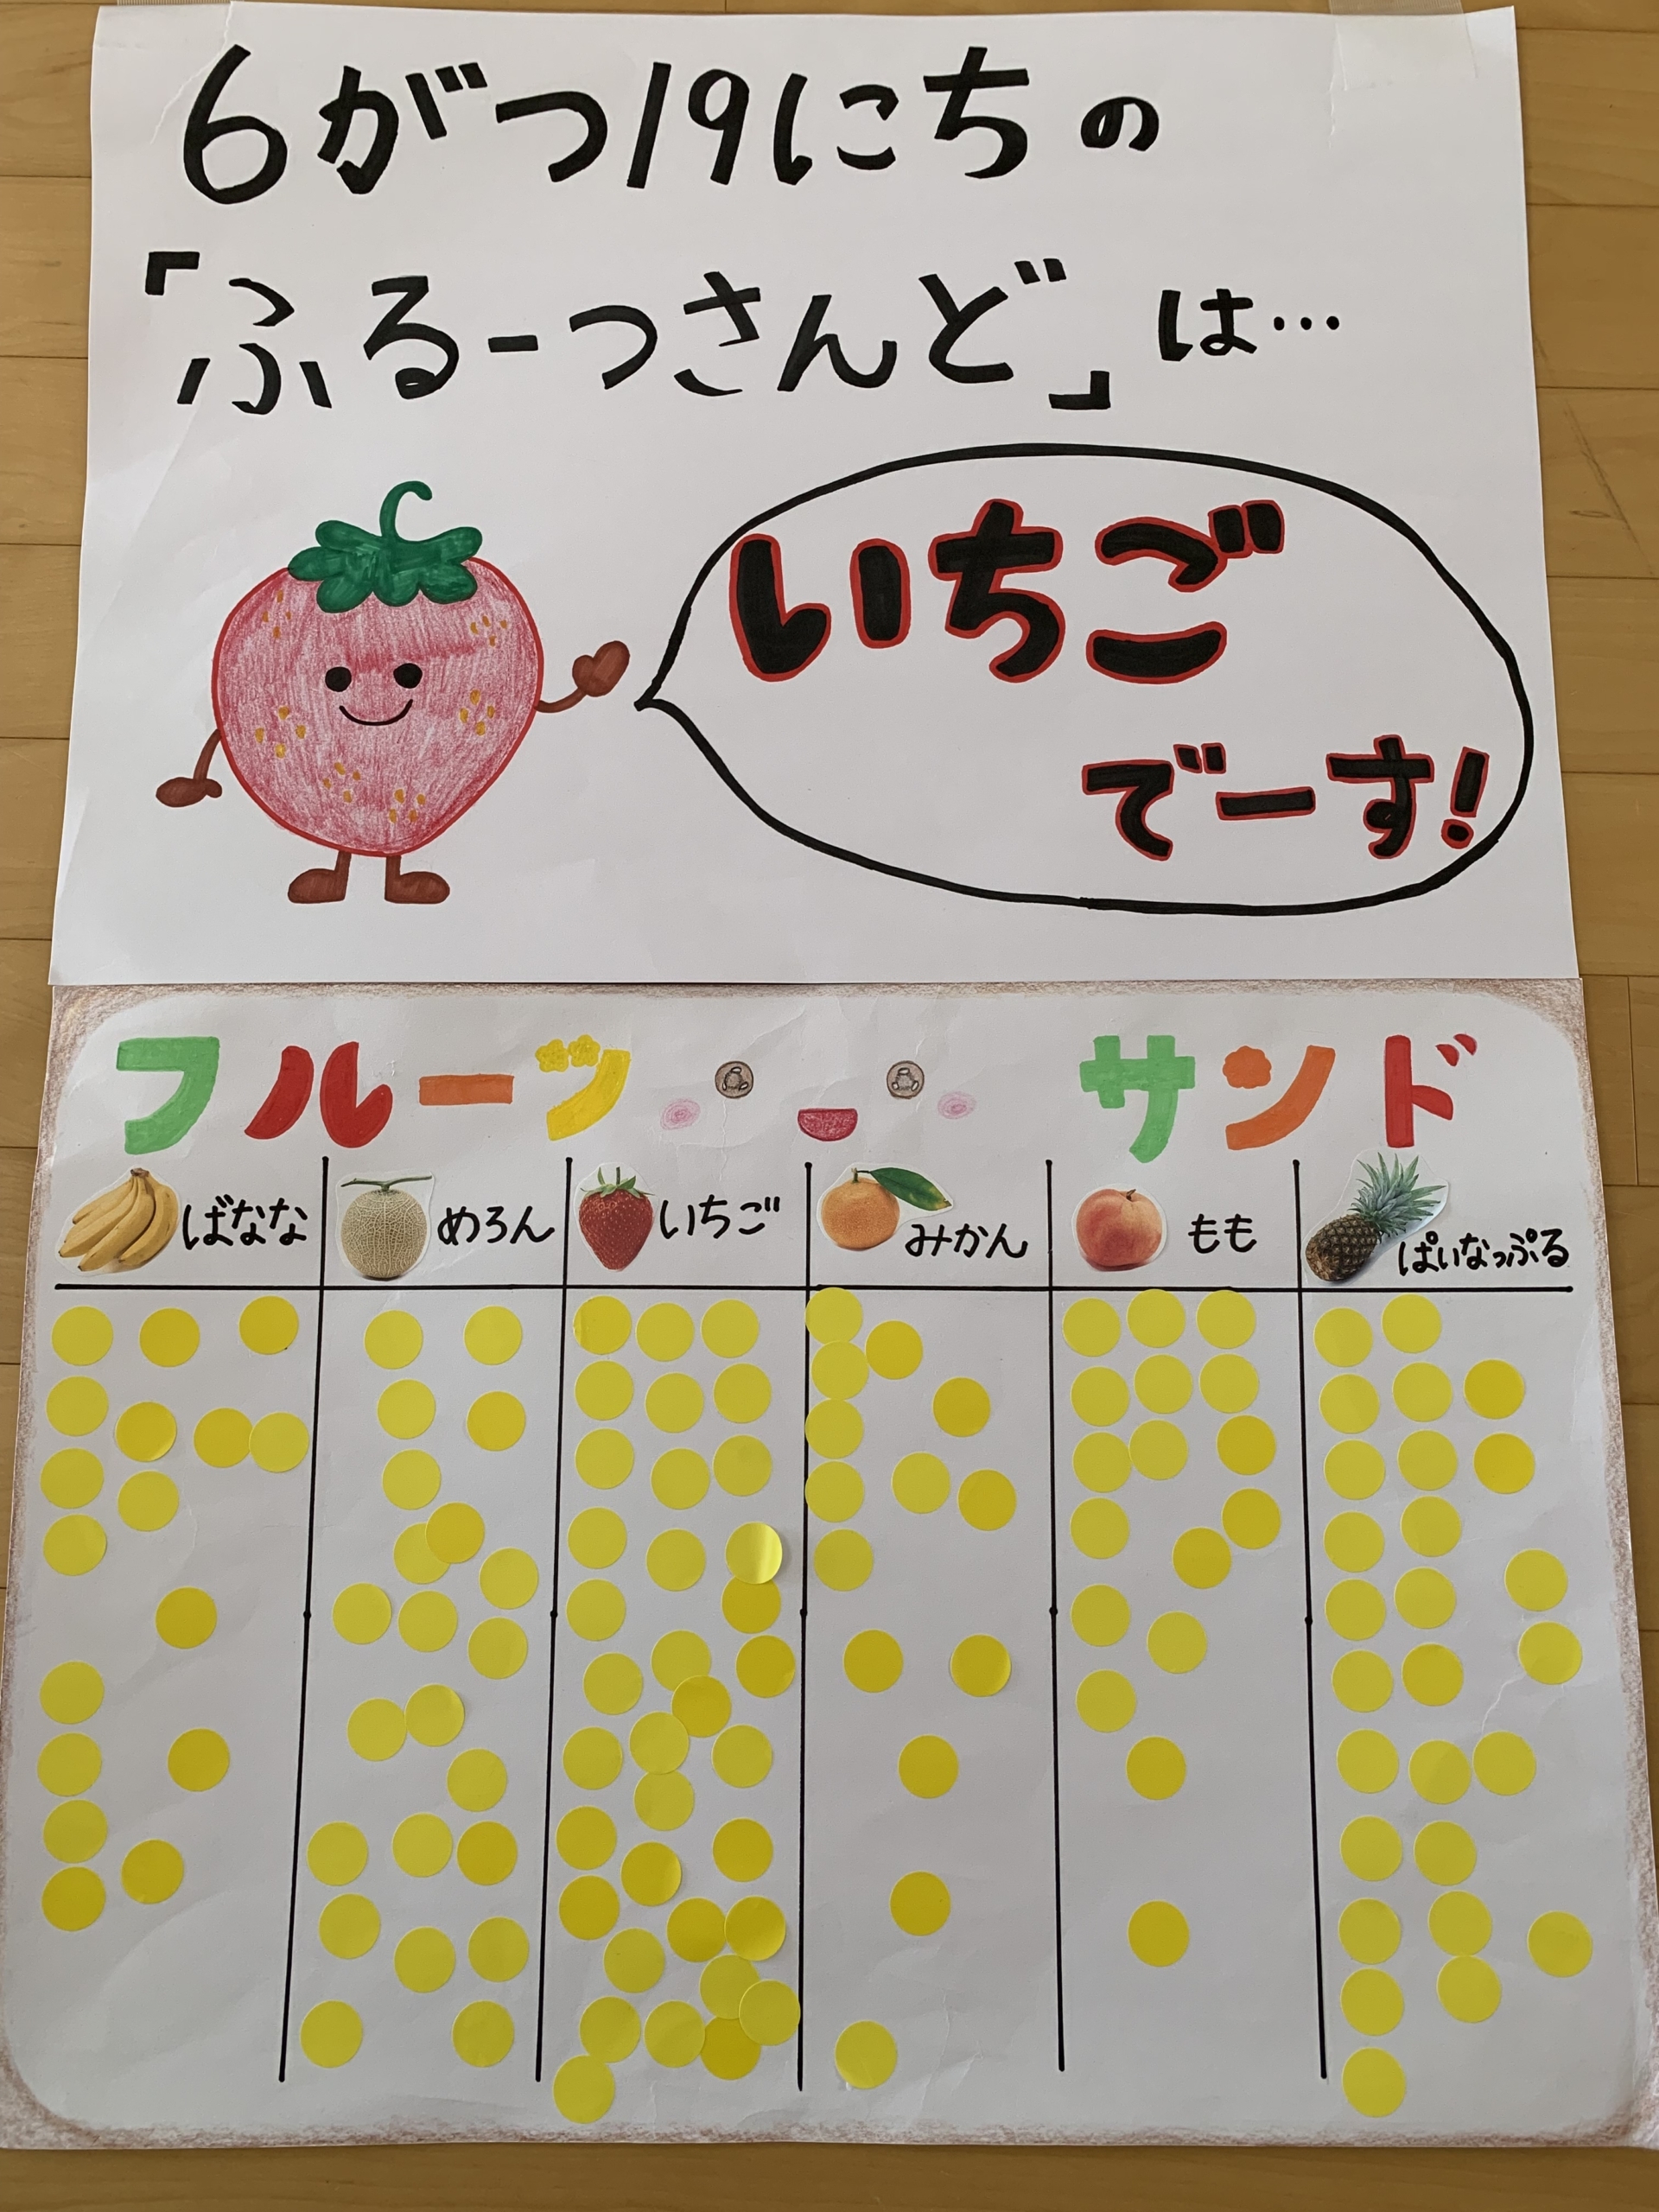 6がつ19にちの
「ふるーつさんど」は…
いちご
でーす!
フルーツ サンド
ばなな めろん いちご みかん もも ぱいなっぷる